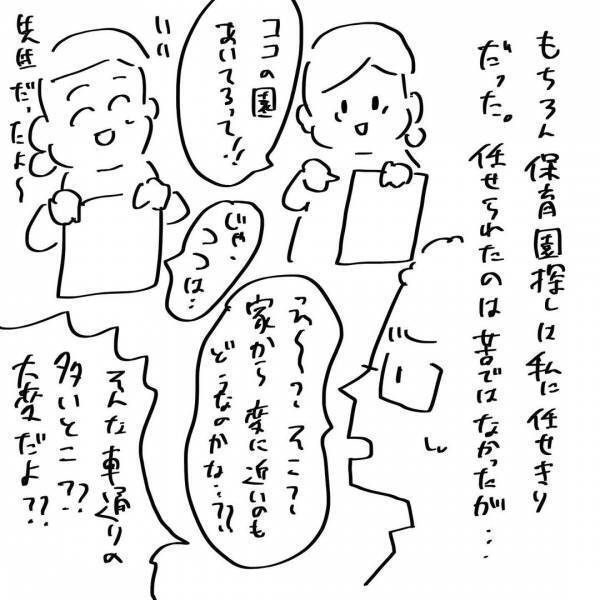 もちろん 保育園探しは 私に 任せきり
だった。 任せられたのは 苦ではなかったが…
ココの園
あいてるって!!
え〜〜っ そこっ〜
家から 変に近いのも
どうなのかな…??
じゃ、
ココは…
そんな 車通りの
多いとこ??
大変だよ??
だったよ〜